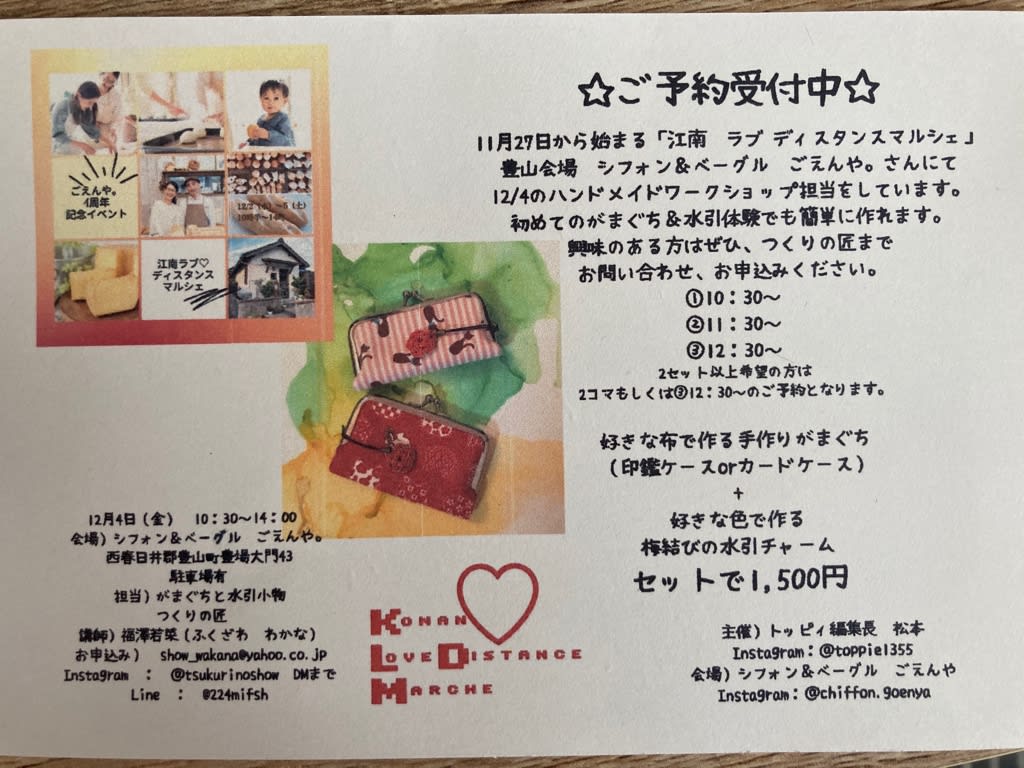 ☆ご予約受付中☆
11月27日から始まる「江南　ラブ ディスタンスマルシェ」
豊山会場　シフォン＆ベーグル　ごえんや。さんにて
12/4のハンドメイドワークショップ担当をしています。
初めてのがまぐち＆水引体験でも簡単に作れます。
興味のある方はぜひ、つくりの匠まで
お問い合わせ、お申込みください。
①10：30～
②11：30～
③12：30～
2セット以上希望の方は
2コマもしくは③12：30～のご予約となります。
好きな布で作る手作りがまぐち
（印鑑ケースorカードケース）
+
好きな色で作る
梅結びの水引チャーム
セットで1,500円
主催）トッピィ編集長　松本
Instagram：@toppie1355
会場）シフォン＆ベーグル　ごえんや
Instagram：@chiffon.goenya
ごえんや。
4周年
記念イベント
12/2（水）～5（土）
10時半～14時
江南ラブ♡
ディスタンス
マルシェ
12月4日（金）　10：30～14：00
会場）シフォン＆ベーグル　ごえんや。
西春日井郡豊山町豊場大門43
駐車場有
担当）がまぐちと水引小物
つくりの匠
講師）福澤若菜（ふくざわ　わかな）
お申込み）　show_wakana@yahoo.co.jp
Instagram　：　@tsukurinoshow　DMまで
Line　：　@224mifsh
KONAN
LOVE DISTANCE
MARCHE